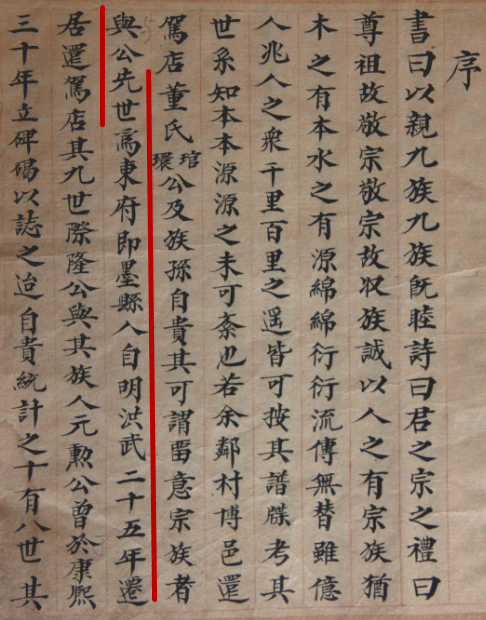 序
書曰以親九族九族既睦詩曰君之宗之禮曰
尊祖故敬宗敬宗故収族誠以人之有宗族猶
木之有本水之有源綿綿衍衍流傳無替雖億
人兆人之衆千里百里之遥皆可按其譜牒考其
世系知本本源源之未可紊也若余鄰村博邑還
駕店董氏琯環公及族孫自貴其可謂畱意宗族者
與公先世爲東府即墨縣人自明洪武二十五年遷
居還駕店其九世際隆公與其族人元勲公曾於康熙
三十年立碑碣以誌之迨自貴統計之十有八世其